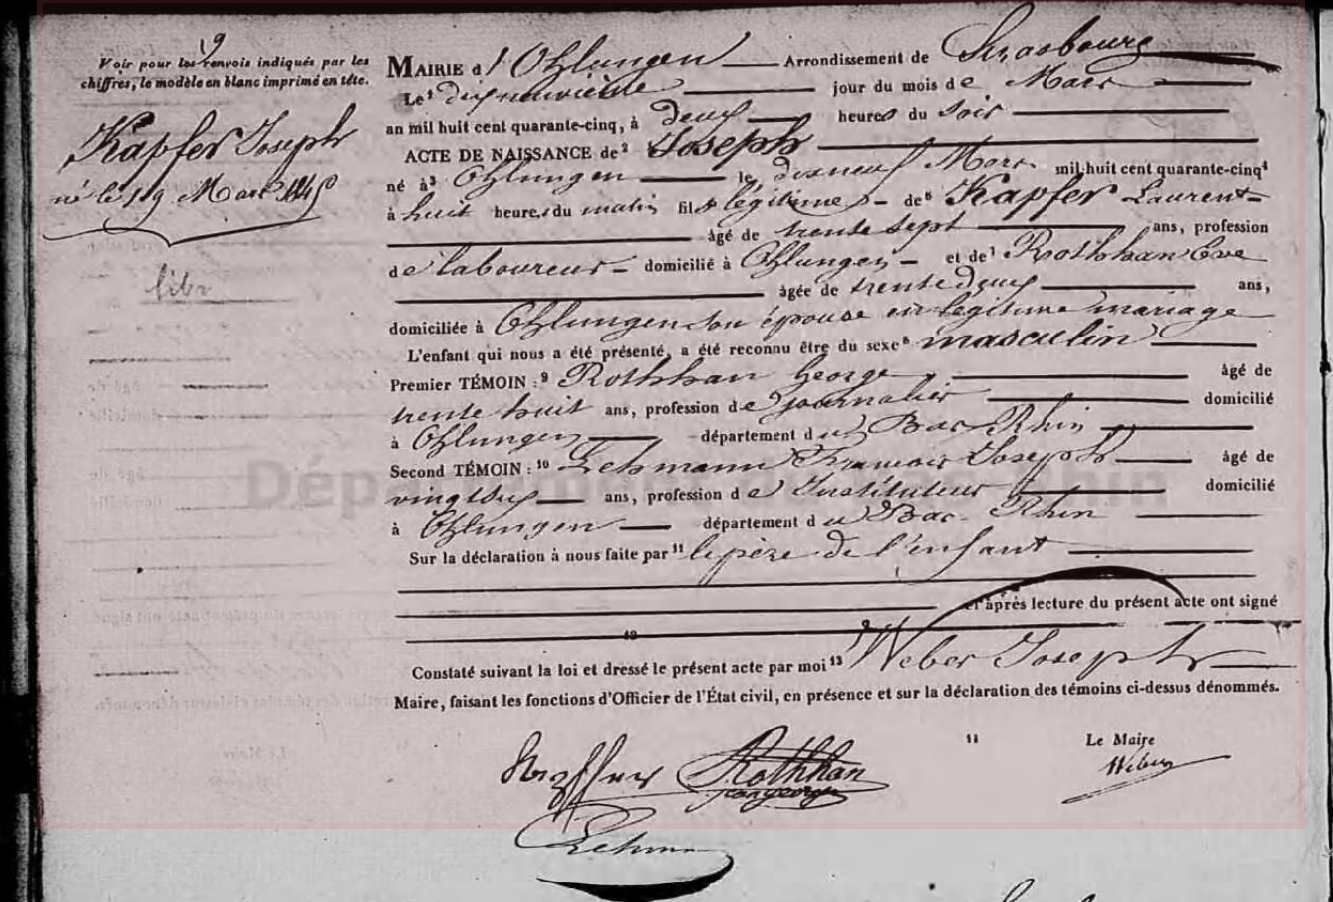 9
Voir pour les renvois indiqués par les
chiffres, le modèle en blanc imprimé en tête.
Kapfer Joseph
né le 19 Mars 1845
MAIRIE d'Ohlungen Arrondissement de Strasbourg
Le¹ dixneuvième jour du mois de Mars
an mil huit cent quarante-cinq, à deux heures du soir
ACTE DE NAISSANCE de² Joseph
né à³ Ohlungen le dixneuf Mars mil huit cent quarante-cinq⁴
à huit heures du matin fils légitime de⁶ Kapfer Laurent
âgé de trente sept ans, profession
de laboureur domicilié à Ohlungen et de⁷ Rothhan Eve
âgée de trente deux ans,
domiciliée à Ohlungen son épouse en légitime mariage
L'enfant qui nous a été présenté, a été reconnu être du sexe⁸ masculin
Premier TÉMOIN :⁹ Rothhan George âgé de
trente huit ans, profession de journalier domicilié
à Ohlungen département du Bas Rhin
Second TÉMOIN :¹⁰ Lehmann François Joseph âgé de
ans, profession de Instituteur domicilié
à Ohlungen département du Bas-Rhin
Sur la déclaration à nous faite par¹¹ le père de l'enfant
et après lecture du présent acte ont signé
12
Constaté suivant la loi et dressé le présent acte par moi¹³ Weber Joseph
Maire, faisant les fonctions d'Officier de l'État civil, en présence et sur la déclaration des témoins ci-dessus dénommés.
Le Maire
Rothhan Weber